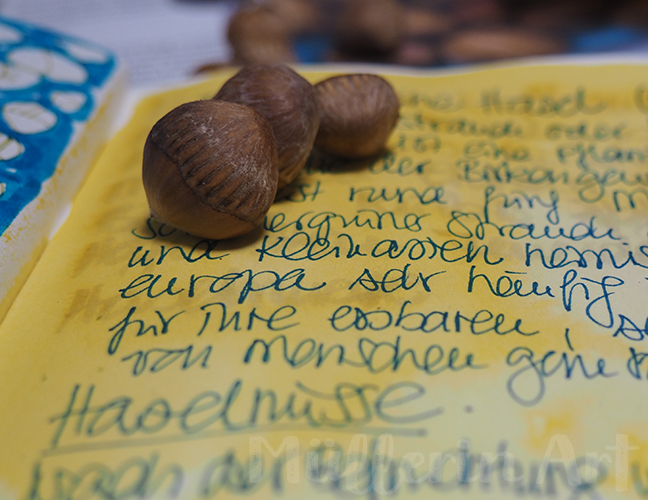 Hasel (
strauch oder
ist eine Pflan
der Birkengew
ist rund fünf M
sommergrüner Strauch
und Kleinasien heimis
europa sehr häufig
für ihre essbaren,
von Menschen gerne
Haselnüsse.
Nach der Befruchtung
Müllerin Art